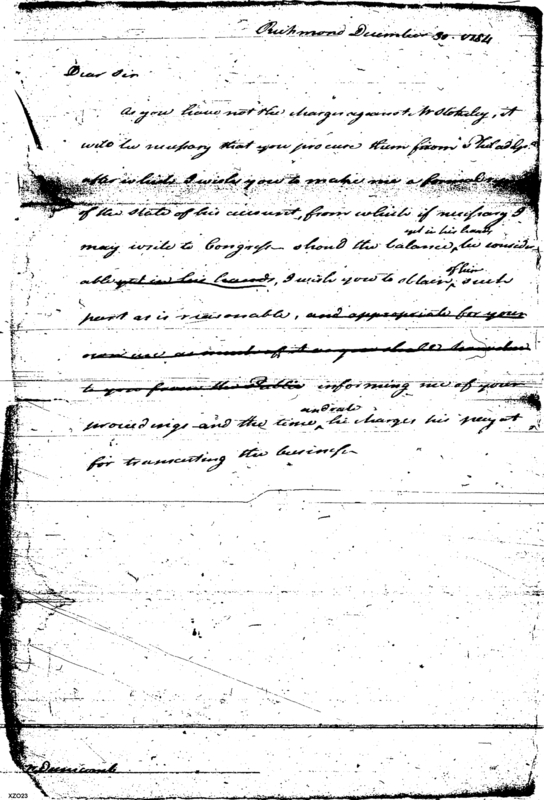 Richmond December 30. 1784
Dear Sir
As you have not the charges against Mr Stokeley, it
will be necessary that you procure them from Philadelpa
after which I wish you to make me a
of the state of his account, from which if necessary I
yet in his hands
may write to Congress should the balance, be consider
of him
able yet in his hands, I wish you to obtain such
part as is reasonable, and appropriate for your
own use as much of it as you shall
to you from the Public informing me of your
and rate
proceedings and the time, he charges his pay at,
for transacting the business
Dunscomb
XZO23